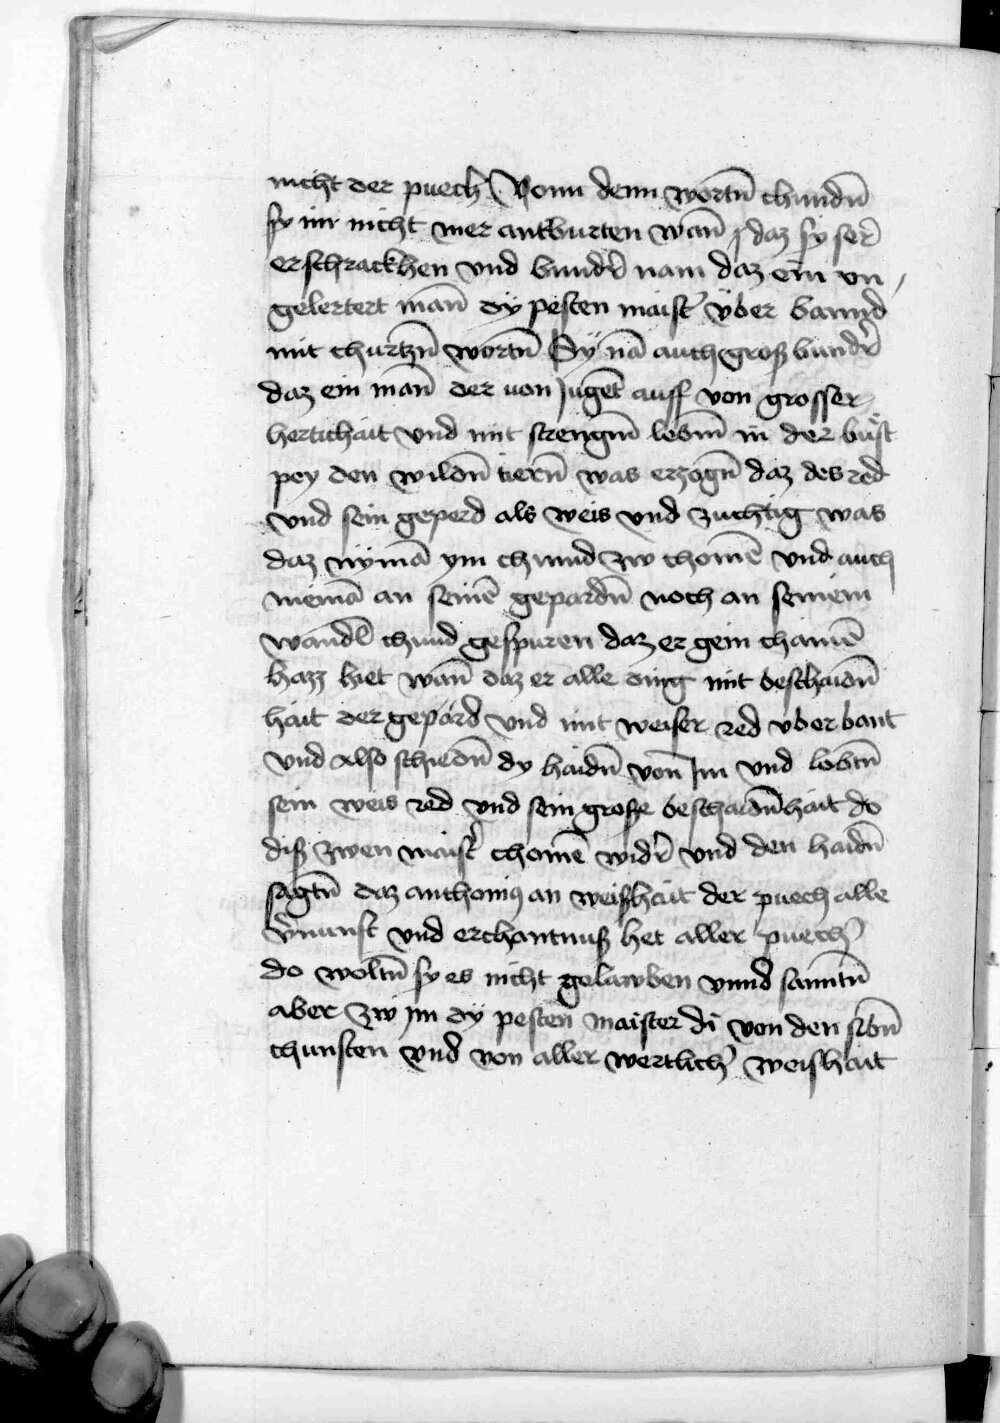 nicht der puech̄ Vonn denn wortn̄ chundn̄
sy im nicht mer antburten wan̄ daz sy ser̄
erschrackhen vnd bundr̄ nam daz ein vn
gelertert man̄ dÿ pesten maist̄ vber bannd
mit churtzn̄ wortn̄ Sÿ nā auch groß bundr̄
daz ein man̄ der von Jugēt auff von grosser
hertichait vnd mit strengm̄ lebm̄ in der büst
pey den wildn̄ tiern̄ was erzogn̄ daz des red
vnd sein geperd als weis vnd zuchtig was
daz nÿmā ym chund zw chomē vnd auch
niemā an seinē gepardn̄ noch an seinem
wandl̄ chund gespuren daz er gein chainē
hazz hiet wan̄ daz er alle ding mit beschaidn̄
hait der gepard vnd mit weiser red vber bant
vnd Also schiedn̄ dy haidn̄ von̄ Im vnd lobtn̄
sein weis red vnd sein grosse beschaidn̄hait do
diß zwen maist̄ chomē widr̄ vnd den haidn̄
sagtn̄ daz anthonius an weishait der puech alle
v̄nunft vnd erchantnuß het aller puech̄
do woltn̄ sy es nicht gelawben vnnd santn̄
aber zw im dÿ pesten maister di von den sibn̄
chunsten vnd von aller wertlich̄ weishait